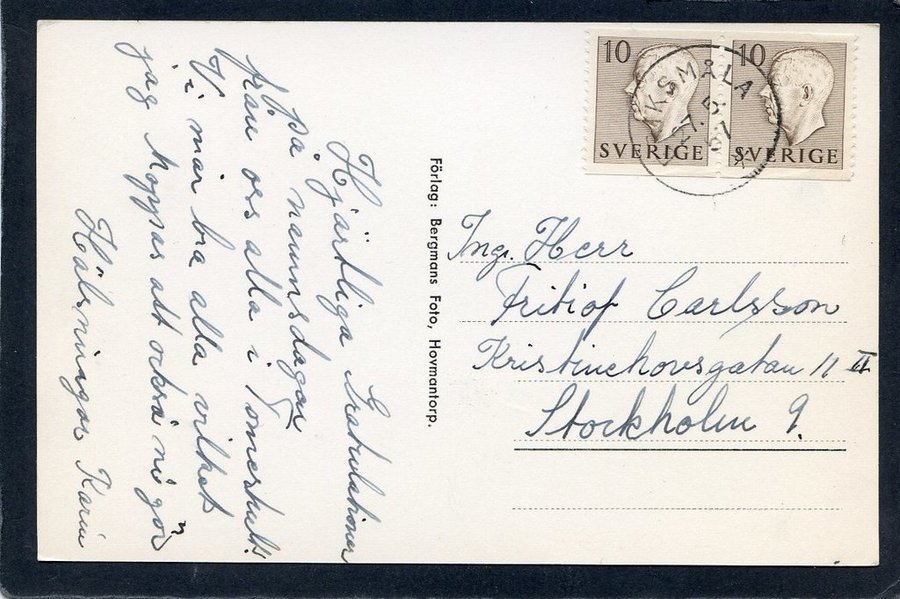 Hjärtliga Gratulationer
på namnsdagar
från oss alla i Tomeshult.
Vi mår bra alla vilket
jag hoppas att också ni gör
Hälsningar Karin
Förlag: Bergmans Foto, Hovmantorp.
10
SVERIGE
10
SVERIGE
AKSMÅLA
7.5
57
Ing. Herr
Fritiof Carlsson
Kristinehovsgatan 11 II
Stockholm 9.